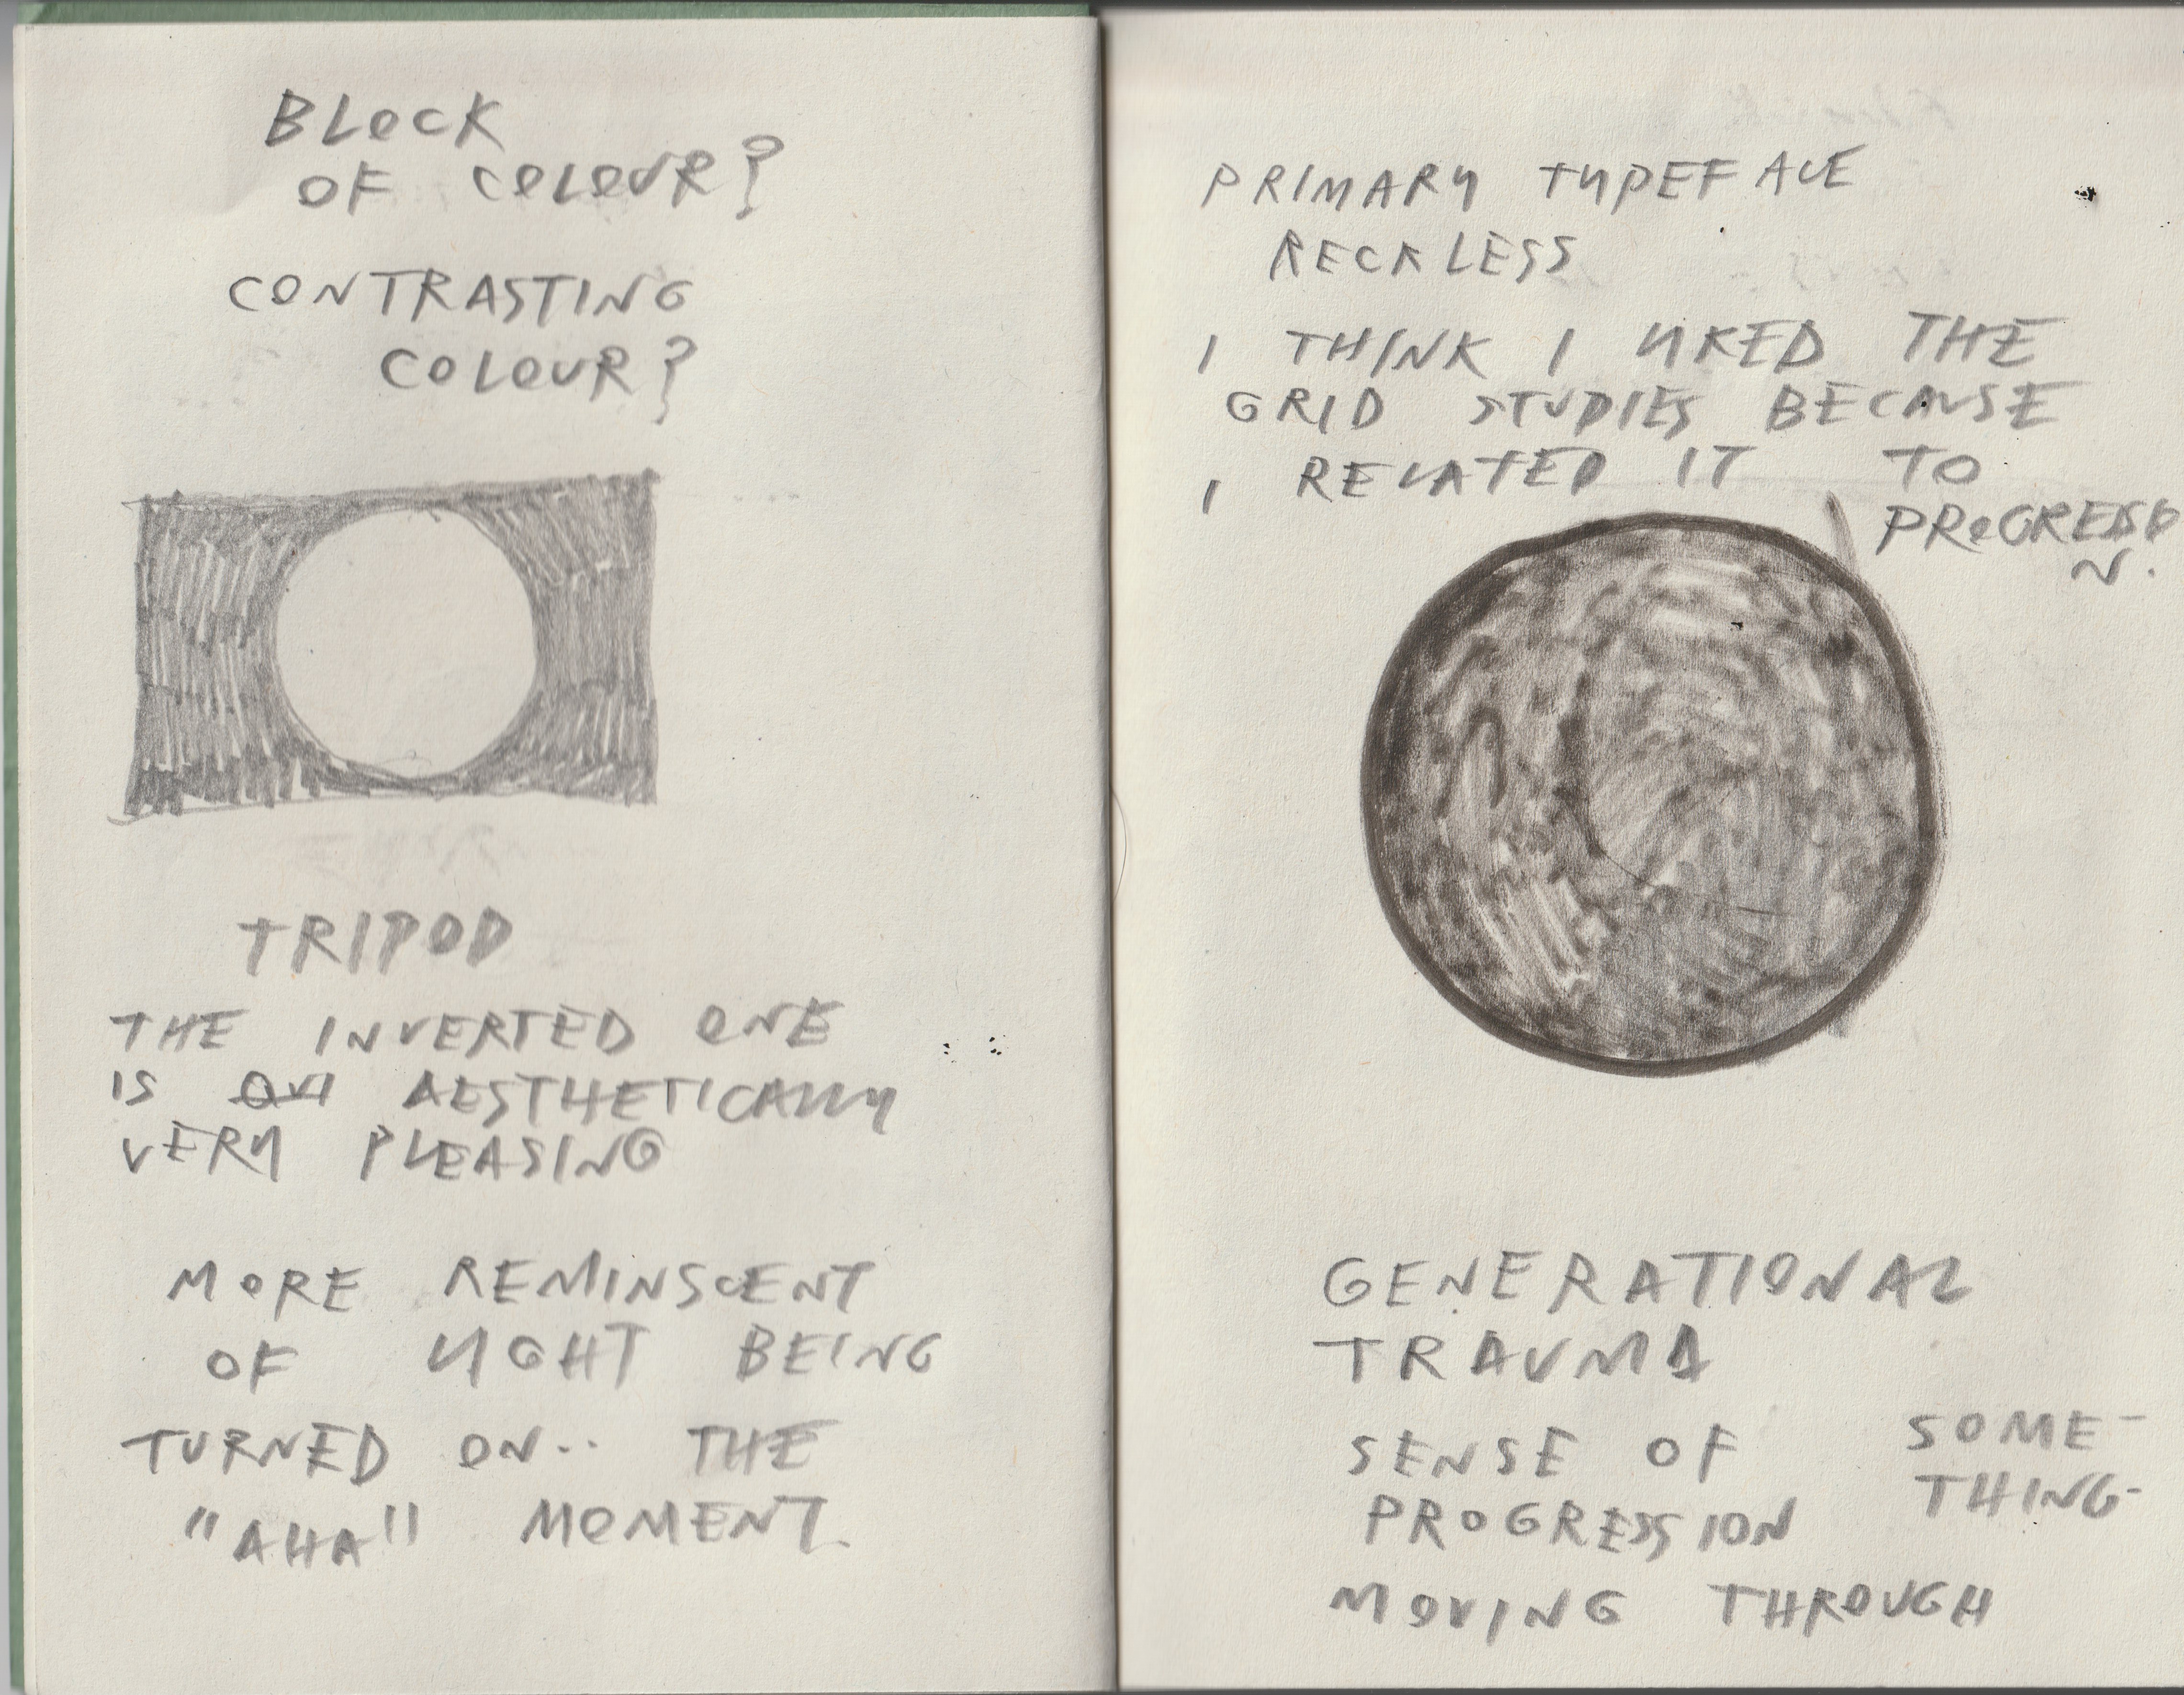 BLOCK
OF COLOUR?
CONTRASTING
COLOUR?
TRIPOD
THE INVERTED ONE
IS AESTHETICALLY
VERY PLEASING
MORE REMINSCENT
OF LIGHT BEING
TURNED ON.. THE
"AHA" MOMENT.
PRIMARY TYPEFACE
RECKLESS
I THINK I LIKED THE
GRID STUDIES BECAUSE
I RELATED IT TO
PROGRESSIO
N.
GENERATIONAL
TRAUMA
SENSE OF SOME-
PROGRESSION THING-
MOVING THROUGH